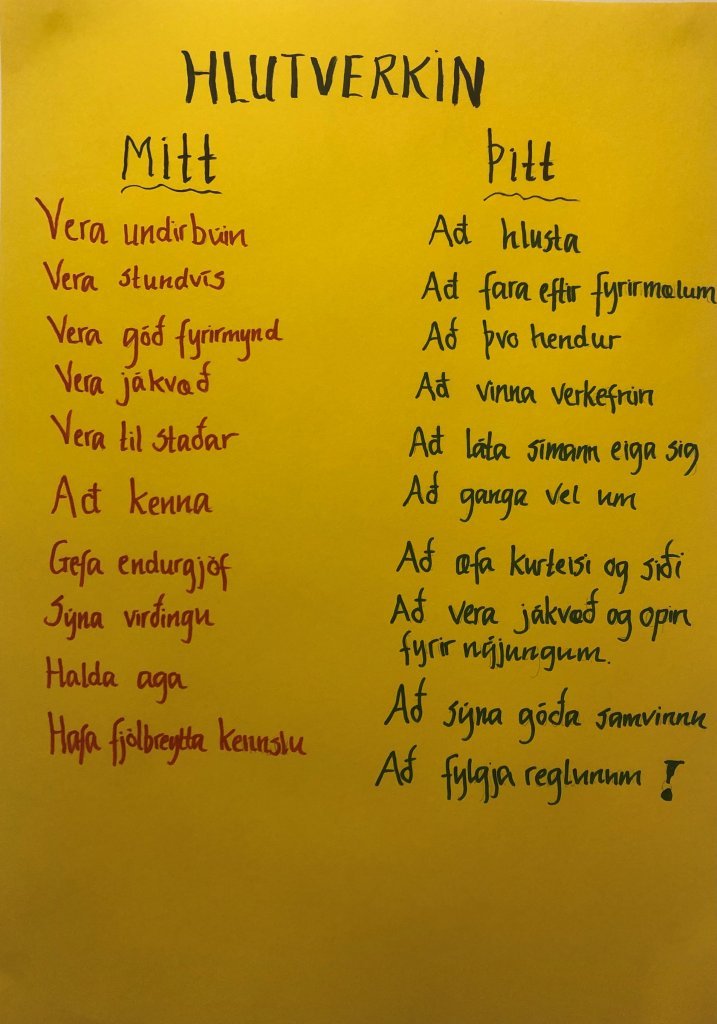 HLUTVERKIN
Mitt
Vera undirbúin
Vera stundvís
Vera góð fyrirmynd
Vera jákvæð
Vera til staðar
Að kenna
Gefa endurgjöf
Sýna virðingu
Halda aga
Hafa fjölbreytta kennslu
Þitt
Að hlusta
Að fara eftir fyrirmælum
Að þvo hendur
Að vinna verkefnin
Að láta símann eiga sig
Að ganga vel um
Að æfa kurteisi og siði
Að vera jákvæð og opin
fyrir nýjungum.
Að sýna góða samvinnu
Að fylgja reglunum !